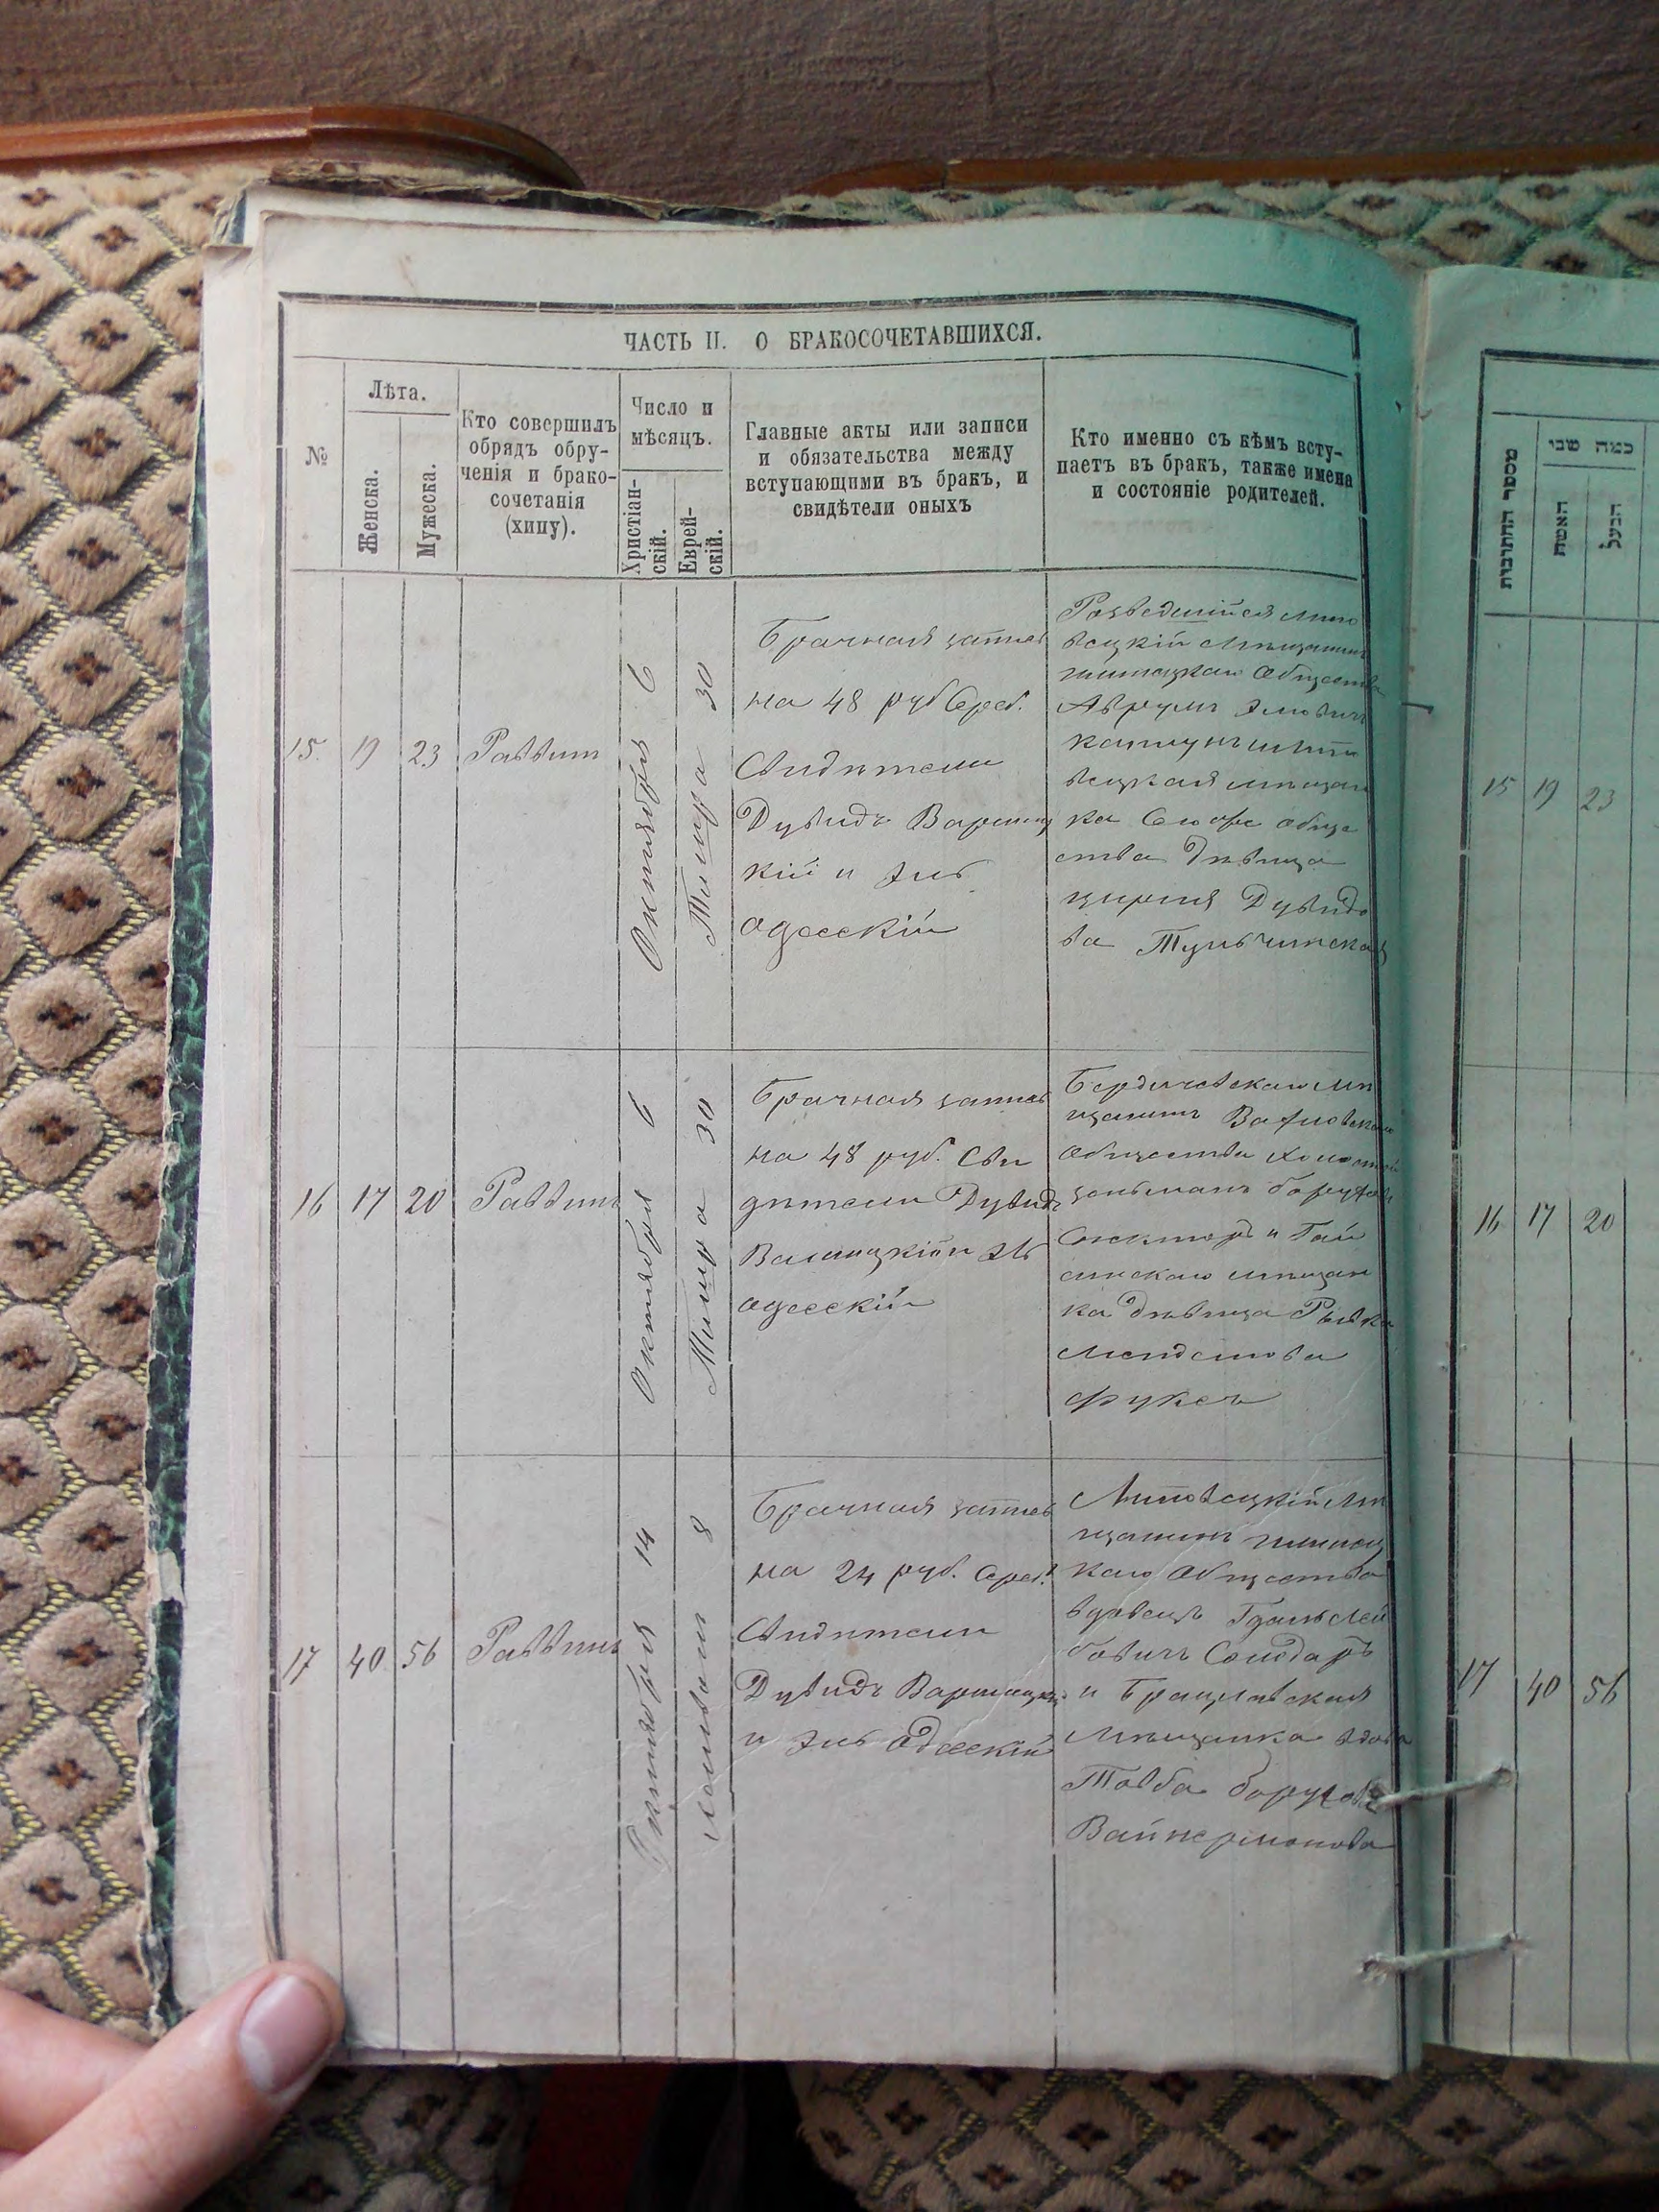 ЧАСТЬ II. О БРАКОСОЧЕТАВШИХСЯ.
№
Лѣта.
Женска.
Мужеска.
Кто совершилъ
обрядъ обру-
ченія и брако-
сочетанія
(хипу).
Число и
мѣсяцъ.
Христіан-
скій.
Еврей-
скій.
Главные акты или записи
и обязательства между
вступающими въ бракъ, и
свидѣтели оныхъ
Кто именно съ кѣмъ всту-
паетъ въ бракъ, также имена
и состояніе родителей.
15
19
23
Раввинъ
Октября 6
Тишра 30
Брачная запись
на 48 руб Сереб.
Свидѣтели
Дувидъ
кій и Эль
одесскій
Разведшійся
Мѣщанинъ
Общества
Аврумъ
мѣщан
ка обще
ства дѣвица
Дувидо
ва Тульчинская
16
17
20
Раввинъ
Октября 6
Тишра 30
Брачная запись
на 48 руб. Сви
дѣтели Дувидъ
одесскій
Бердичевскаго Мѣ
щанинъ
Общества
и Гай
синскаго мѣщан
ка дѣвица Рывка
Менделиова
Фуксъ
17
40
56
Раввинъ
Октября 14
8
Брачная запись
на 24 руб. Сереб.
Свидѣтели
Дувидъ
и Эль Одесскій
Липовецкій Мѣ
щанинъ
каго Общества
вдовецъ Лей
бовичъ
и Брацлавская
Мѣщанка вдова
Товба Борухова
Вайнермонова
מספר החתונות
כמה שני
האשה
הבעל
15
19
23
16
17
20
17
40
56